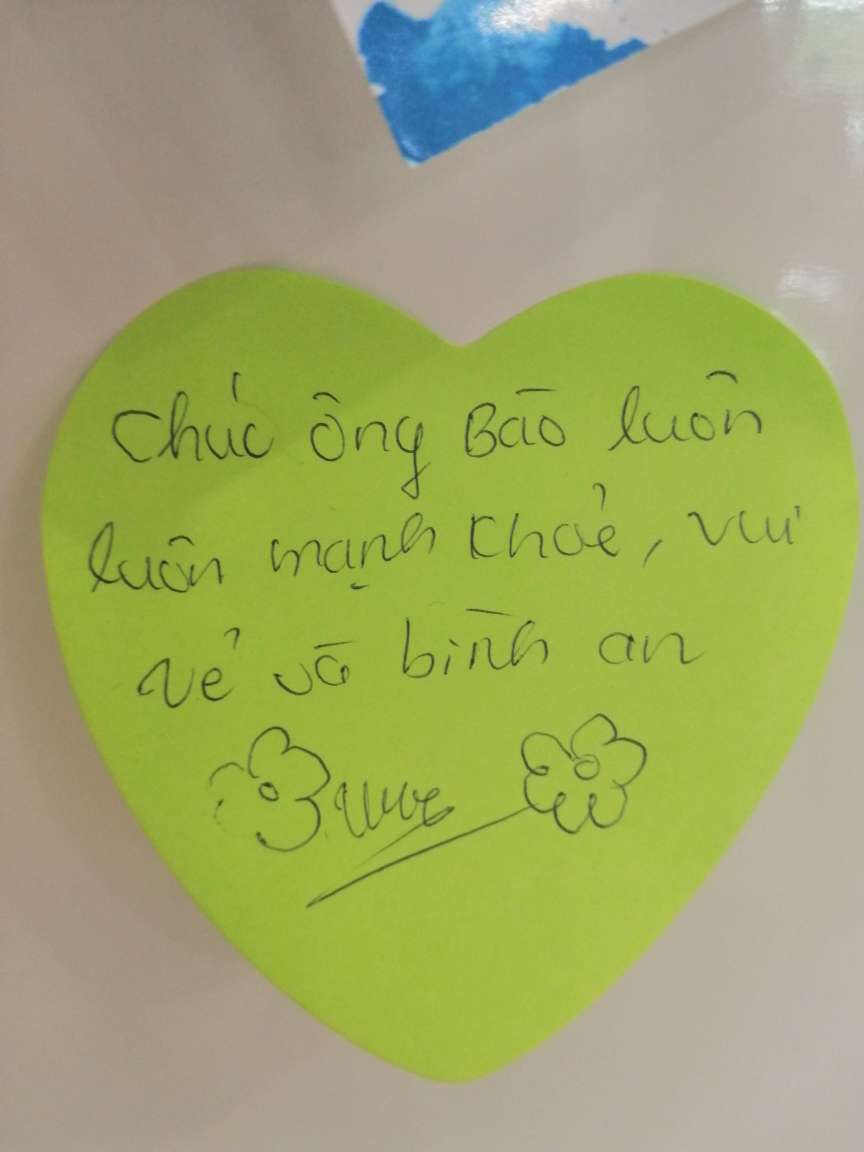 Chúc ông Bão luôn
luôn mạnh khỏe, vui
vẻ và bình an